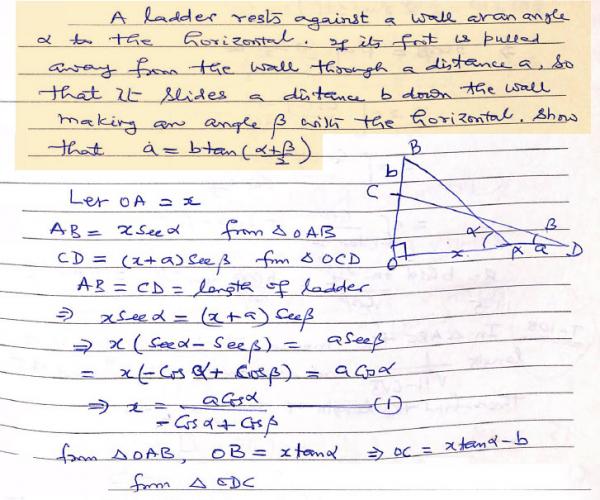 A ladder rests against a wall at an angle
α to the horizontal. If its foot is pulled
away from the wall through a distance a, so
that it slides a distance b down the wall
making an angle β with the horizontal. Show
that a = b tan(α+β/2)
B
b
C
α
β
O
x
A
a
D
Let OA = x
AB = x secα from △OAB
CD = (x+a) secβ from △OCD
AB = CD = length of ladder
⇒ x secα = (x+a) secβ
⇒ x(secα - secβ) = a secβ
= x(-cosα + cosβ) = a cosα
⇒ x = a cosα / -cosα + cosβ (1)
from △OAB, OB = x tanα ⇒ OC = x tanα - b
from △ODC